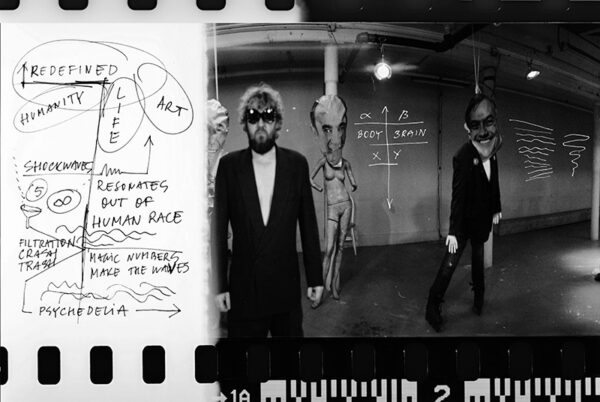 REDEFINED
HUMANITY
LIFE
ART
SHOCKWAVES
5
∞
RESONATES
OUT OF
HUMAN RACE
FILTRATION
CRASH
TRASH
MAGIC NUMBERS
MAKE THE WAVES
PSYCHEDELIA
α β
BODY BRAIN
X Y
1A
2